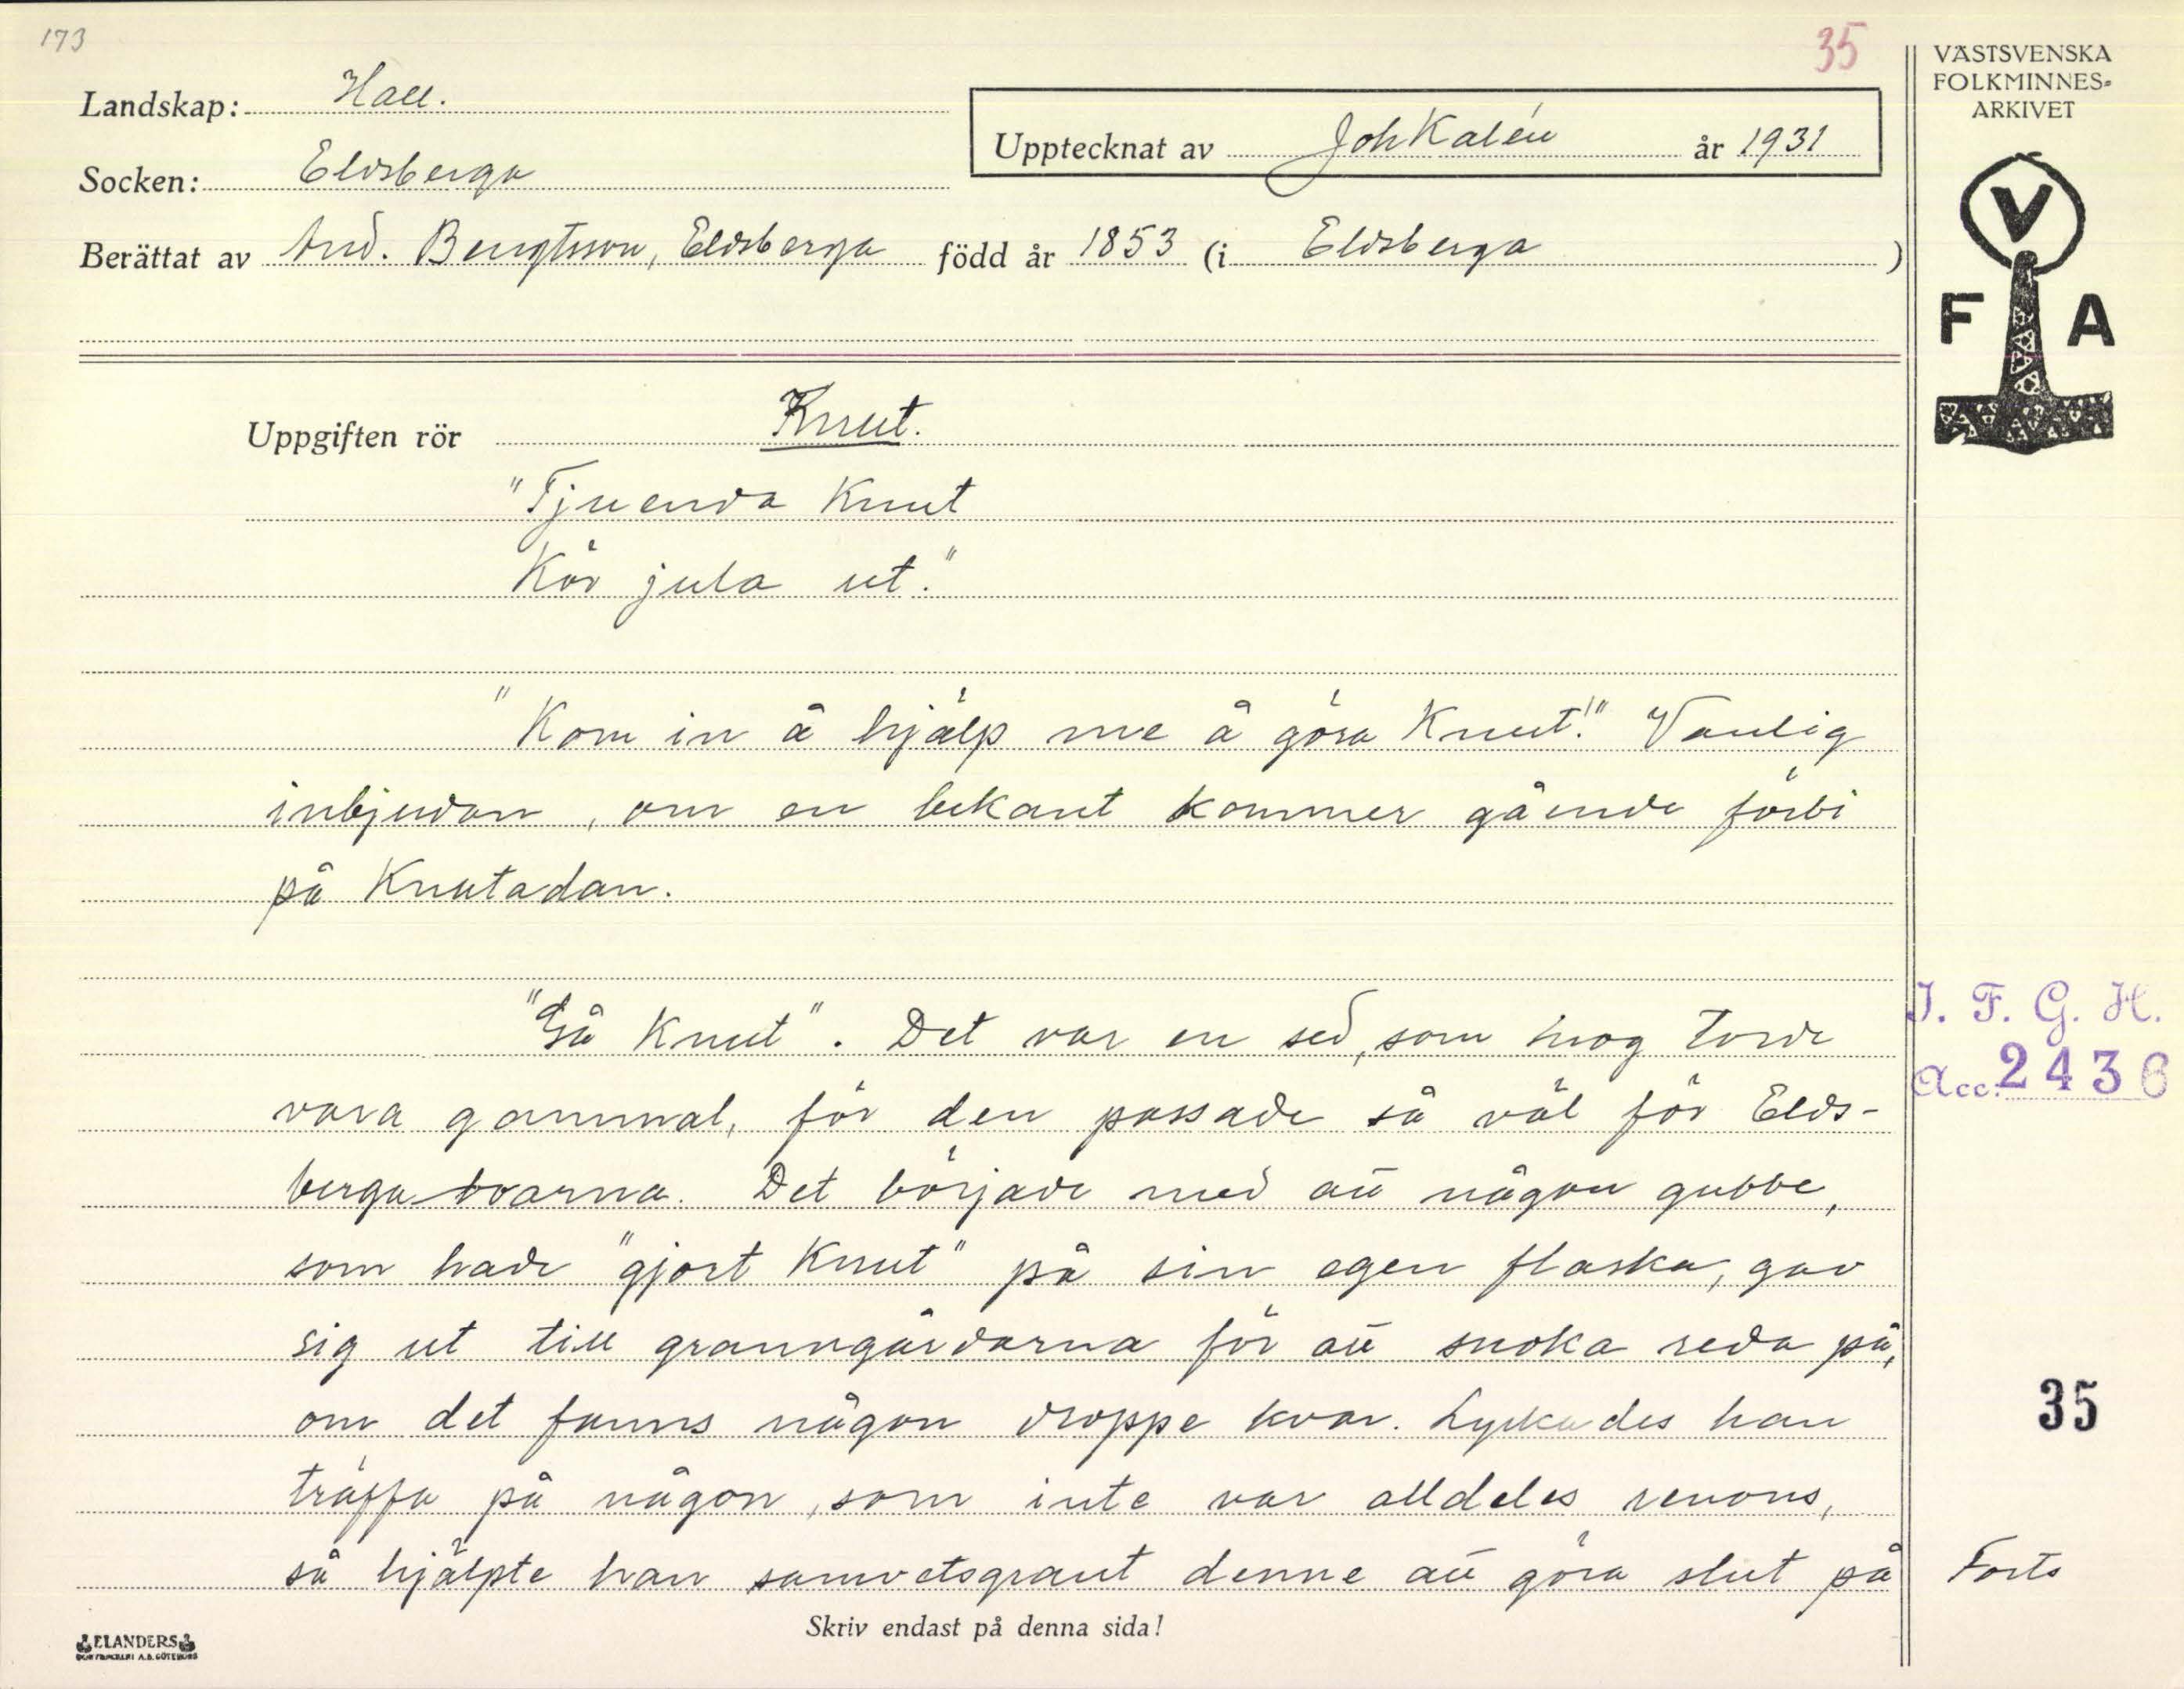 173
35
Landskap: Hall.
Socken: Eldsberga
Upptecknat av Joh Kalén år 1931
Berättat av And. Bengtsson, Eldsberga född år 1853 (i Eldsberga)
VÄSTSVENSKA
FOLKMINNES-
ARKIVET
V
F A
Uppgiften rör Knut.
"Tjuenda Knut
Kör jula ut."
"Kom in å hjälp me å göra Knut!" Vanlig
inbjudan, om en bekant kommer gående förbi
på Knutadan.
"Gå Knut". Det var en sed, som nog torde
vara gammal, för den passade så väl för Elds-
bergaborna. Det började med att någon gubbe,
som hade "gjort Knut" på sin egen flaska, gav
sig ut till granngårdarna för att snoka reda på,
om det fanns någon droppe kvar. Lyckades han
träffa på någon, som inte var alldeles renons,
så hjälpte han samvetsgrant denne att göra slut på
I. F. G. H.
Acc. 2436
35
Forts
Skriv endast på denna sida!
ELANDERS
BOKTRYCKERI A.B. GÖTEBORG